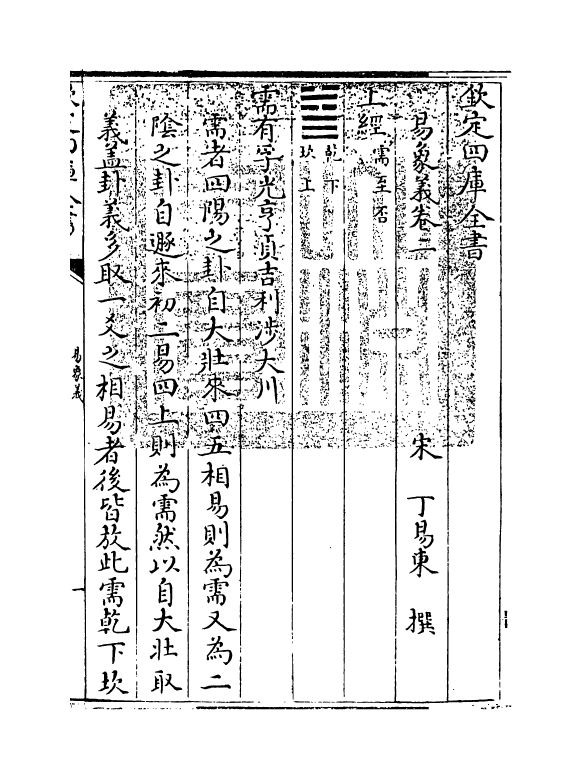 欽定四庫全書
易象義卷二
宋 丁易東 撰
上經 需至否
乾下
坎上
需有孚光亨貞吉利涉大川
需者四陽之卦自大壯來四五相易則為需又為二
陰之卦自遯來初二易四上則為需然以自大壯取
義葢卦義多取一爻之相易者後皆放此需乾下坎
易象義
一